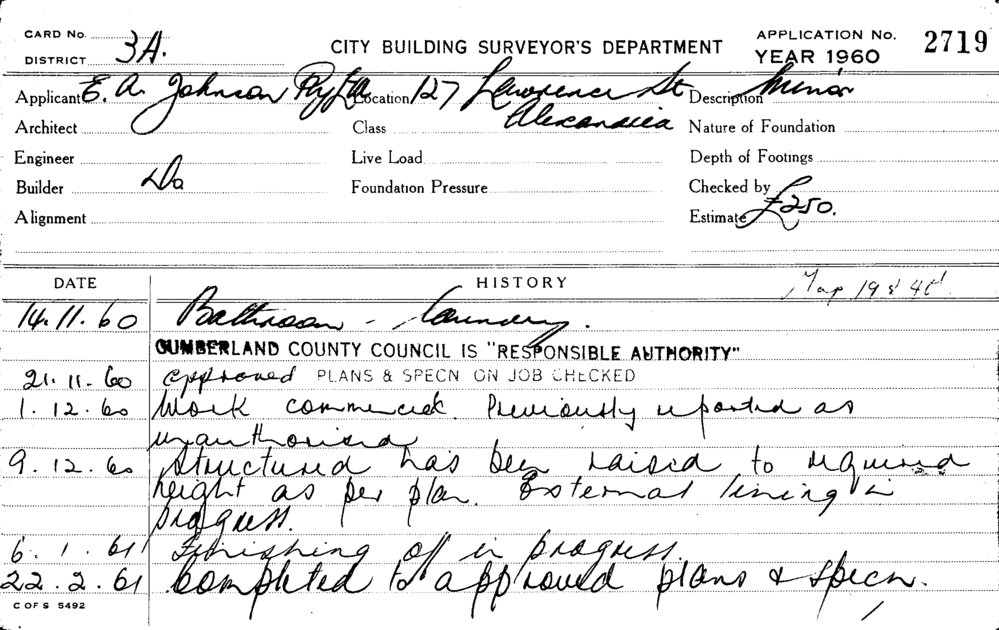 CARD No.
DISTRICT 3A.
CITY BUILDING SURVEYOR'S DEPARTMENT
APPLICATION No. 2719
YEAR 1960
Applicant E. A. Johnson Pty Ltd Location 127 Lawrence St Description Minor
Architect Class Alexandria Nature of Foundation
Engineer Live Load Depth of Footings
Builder Do Foundation Pressure Checked by
Alignment Estimate £250.
DATE HISTORY Map 19 &
14.11.60 Bathroom - laundry.
CUMBERLAND COUNTY COUNCIL IS "RESPONSIBLE AUTHORITY"
21.11.60 approved PLANS & SPECN ON JOB CHECKED
1.12.60 Work commenced. Previously reported as
unauthorised
9.12.60 Structured has been raised to required
height as per plan. External lining in
progress.
6.1.61 Finishing off in progress.
22.2.61 Completed to approved plans & specn.
C OF S 5492